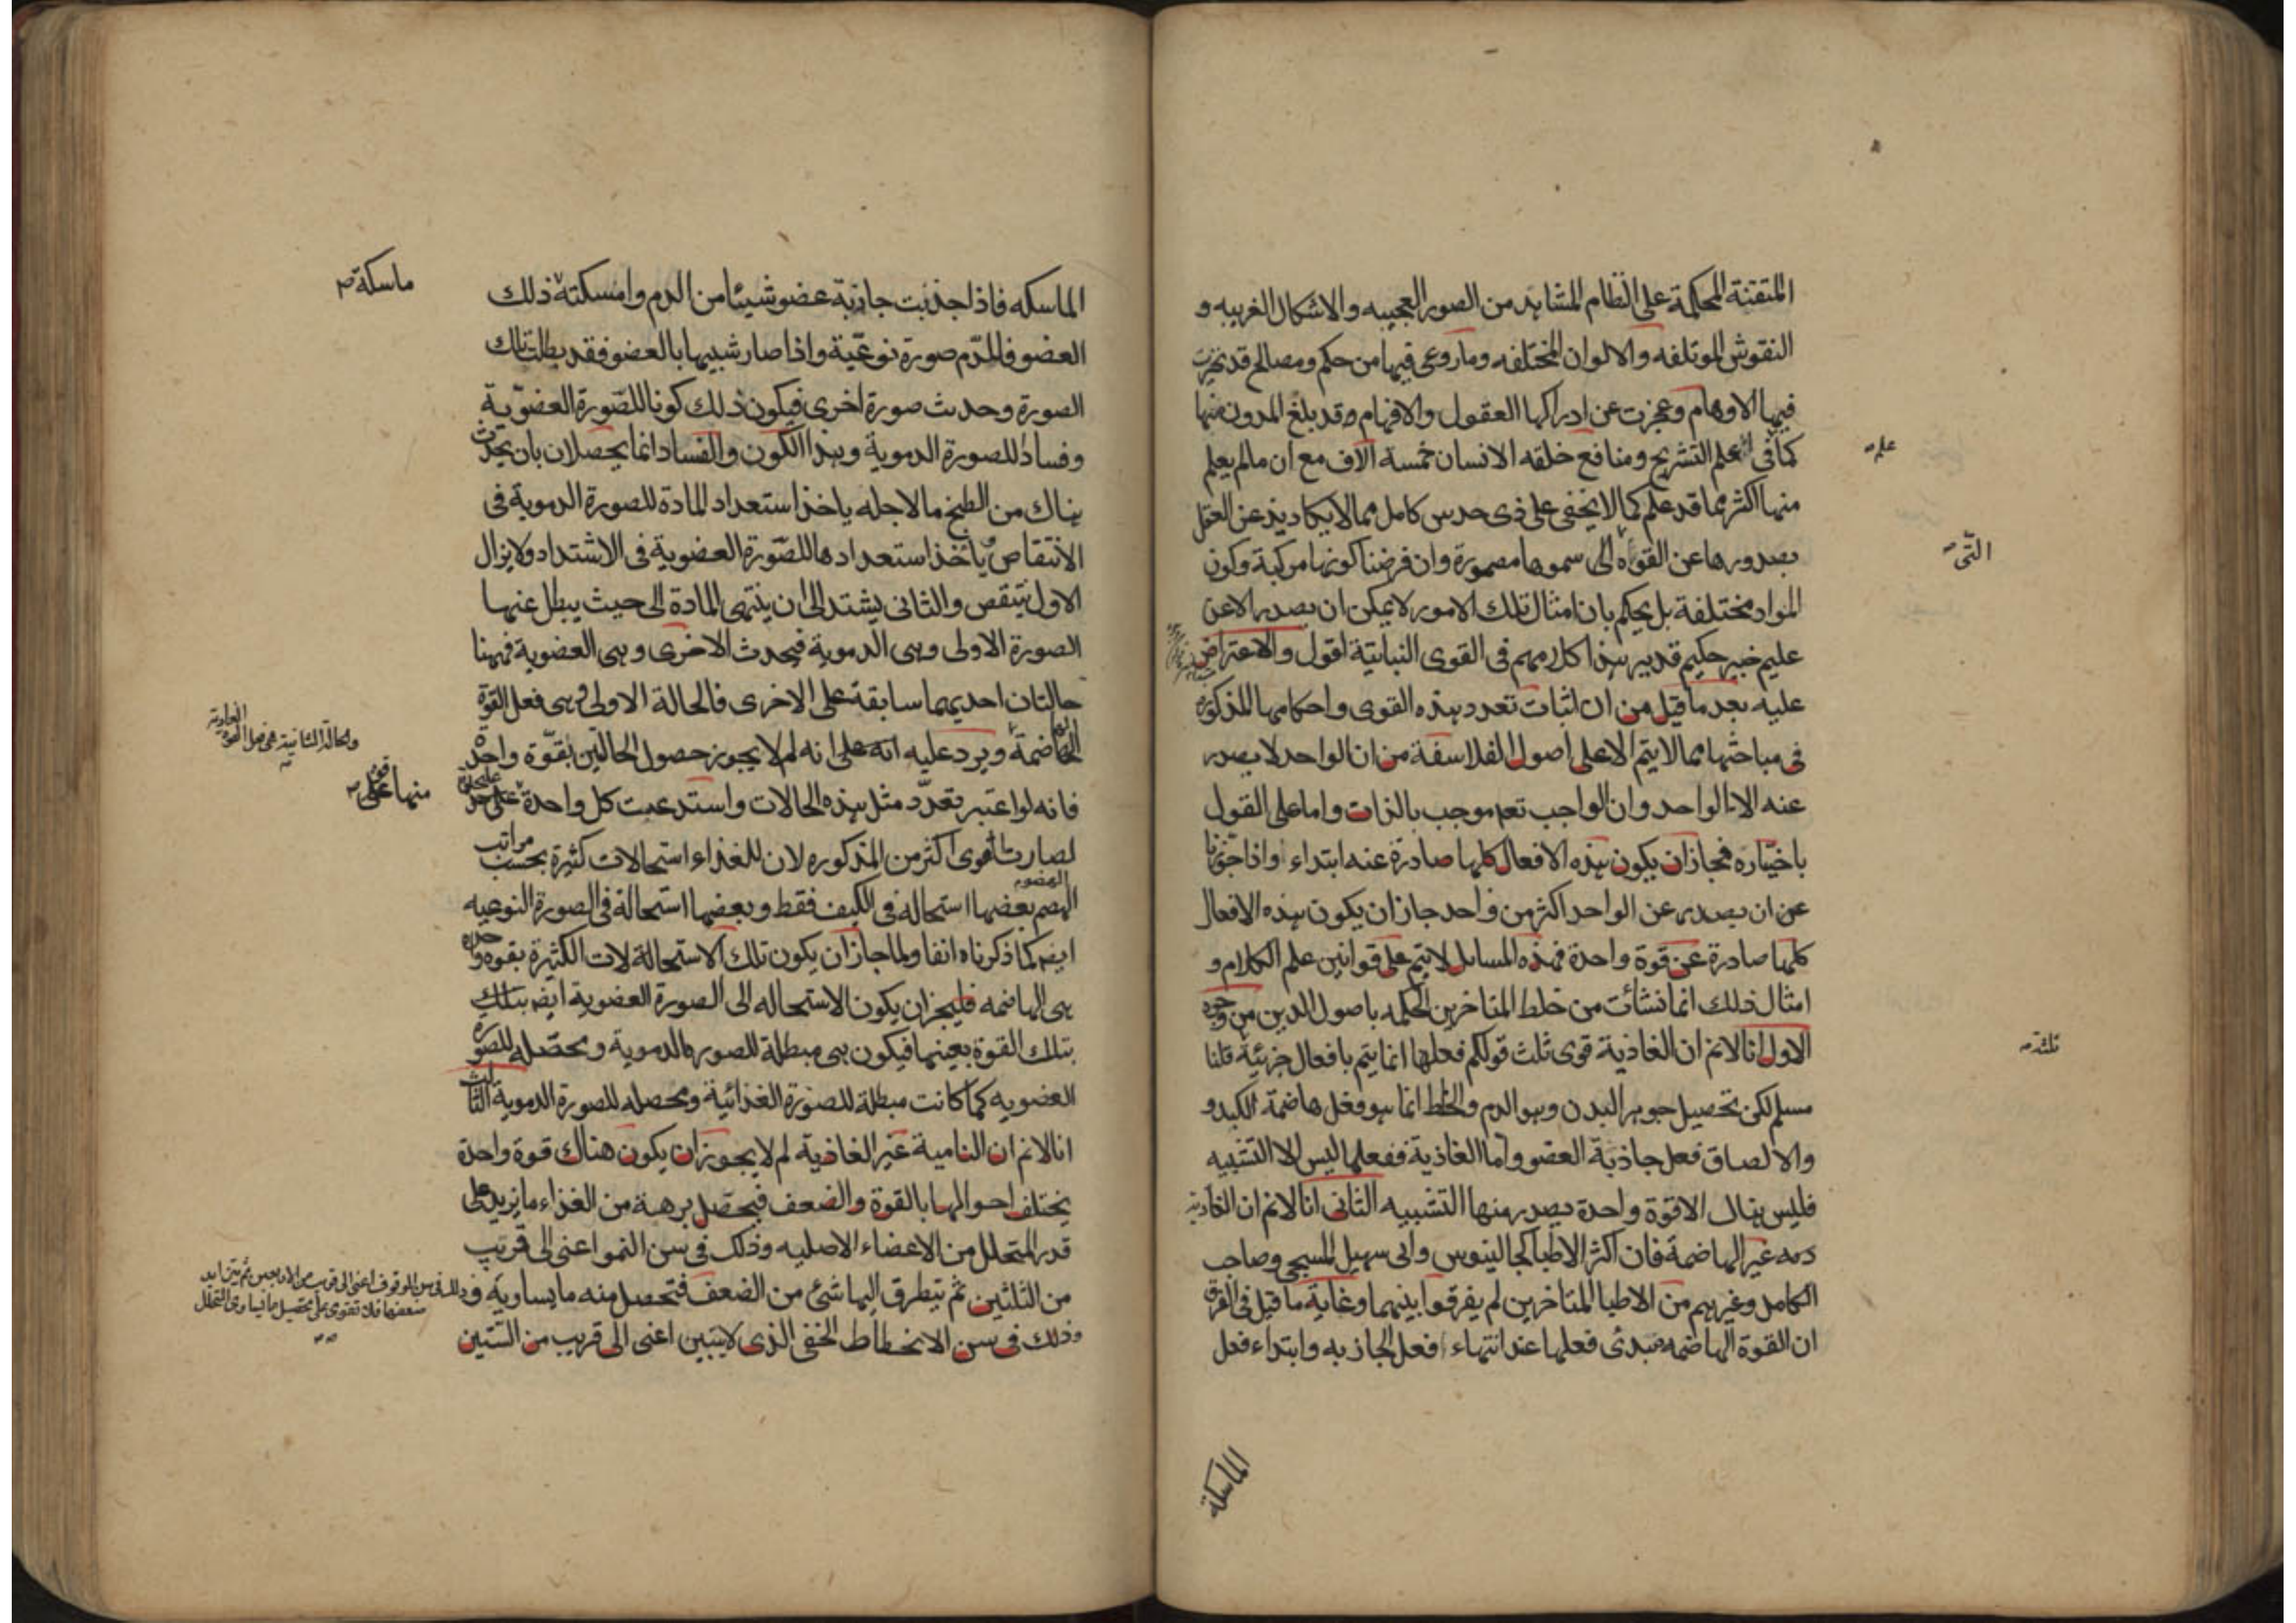 المتقنة المحكمة على النظام المشاهد من الصور العجيبه والاشكال الغريبه و
النقوش الموتلفه والالوان المختلفه وما روعى فيها من حكم ومصالح قد تحيرت
فيها الاوهام وعجزت عن ادراكها العقول والافهام وقد بلغ المدون منها
كما فى علم التشريح ومنافع خلقه الانسان خمسة الاف مع ان مالم يعلم
علم
منها اكثر مما قد علم كما لا يخفى على ذى حدس كامل مما لا يكاد يذعن العقل
بصدورها عن القوة الى سموها مصورة وان فرضنا كونها مركبة وكون
التى
المواد مختلفة بل يحكم بان امثال تلك الامور لا يمكن ان يصدر الا عن
عليم خبير حكيم قدير هذا كلامهم فى القوى النباتية اقول والاعتراض
عليه بعد ما قيل من ان اثبات تعدد هذه القوى واحكامها المذكورة
فى مباحثها مما لا يتم الا على اصول الفلاسفة من ان الواحد لا يصدر
عنه الا الواحد وان الواجب تعم موجب بالذات واما على القول
باختياره فجاز ان يكون هذه الافعال كلها صادرة عنه ابتداء واذا جوزنا
عن ان يصدر عن الواحد اكثر من واحد جاز ان يكون هذه الافعال
كلها صادرة عن قوة واحدة فهذه المسائل لا يتم على قوانين علم الكلام و
امثال ذلك انما نشأت من خلط المتاخرين الحكمه باصول الدين من وجوه
الاول انا لانم ان الغاذية قوى ثلث قولكم فعلها انما يتم بافعال جزئية قلنا
ثلثة
مسلم لكن تحصيل جوهر البدن وهو الدم والخلط انما هو فعل هاضمة الكبد و
والالصاق فعل جاذبة العضو واما الغاذية ففعلها ليس الا التشبيه
فليس هناك الا قوة واحدة يصدر منها التشبيه الثانى انا لانم ان الغاذية
غير الهاضمة فان اكثر الاطبا كجالينوس وابى سهيل المسيحى وصاحب
الكامل وغيرهم من الاطبا المتاخرين لم يفرقوا بينهما وغاية ما قيل فى الفرق
ان القوة الهاضمه مبدئ فعلها عند انتهاء فعل الجاذبه وابتداء فعل
الماسكة
الماسكه فاذا جذبت جاذبة عضو شيئا من الدم وامسكته ذلك
ماسكة
العضو فللدم صورة نوعية واذا صار شبيها بالعضو فقد بطلت تلك
الصورة وحدث صورة اخرى فيكون ذلك كونا للصورة العضوية
وفسادا للصورة الدموية وهذا الكون والفساد انما يحصلان بان يحدث
هناك من الطبخ ما لاجله ياخذ استعداد المادة للصورة الدموية فى
الانتقاص ويأخذ استعدادها للصورة العضوية فى الاشتداد ولا يزال
الاول ينتقص والثانى يشتد الى ان ينتهى المادة الى حيث يبطل عنها
الصورة الاولى وهى الدموية فيحدث الاخرى وهى العضوية فههنا
حالتان احديهما سابقة على الاخرى فالحالة الاولى هى فعل القوة
والحالة الثانية هى فعل القوة الغاذية
الهاضمة ويرد عليه انه على انه لم لا يجوز حصول الحالتين بقوة واحدة
فانه لو اعتبر تعدد مثل هذه الحالات واستدعت كل واحدة على حدة
منها قوى على
لصارت القوى اكثر من المذكوره لان للغذاء استحالات كثيرة بحسب مراتب
الهضم بعضها استحاله فى الكيف فقط وبعضها استحالة فى الصورة النوعيه
الهضوم
ايضم كما ذكرناه انفا ولما جاز ان يكون تلك الاستحالة لات الكثيرة بقوه واحده
هى الهاضمه فليجز ان يكون الاستحاله الى الصورة العضوية ايضم بتلك
بتلك القوة بعينها فيكون هى مبطلة للصورة الدموية ومحصله للصورة
العضويه كما كانت مبطلة للصورة الغذائية ومحصله للصورة الدموية الثالث
انا لانم ان النامية غير الغاذية لم لا يجوز ان يكون هناك قوة واحدة
يختلف احوالها بالقوة والضعف فيحصل برهة من الغذاء ما يزيد على
قدر المتحلل من الاعضاء الاصليه وذلك فى سن النمو اعنى الى قريب
من الثلثين ثم يتطرق اليها شئ من الضعف فتحصل منه ما يساويه
وذلك فى سن الوقوف اعنى الى قريب من الاربعين ثم يتزايد
ضعفها فلا تقوى على تحصيل ما يساوى المتحلل
وذلك فى سن الانحطاط الخفى الذى لا يتبين اعنى الى قريب من الستين